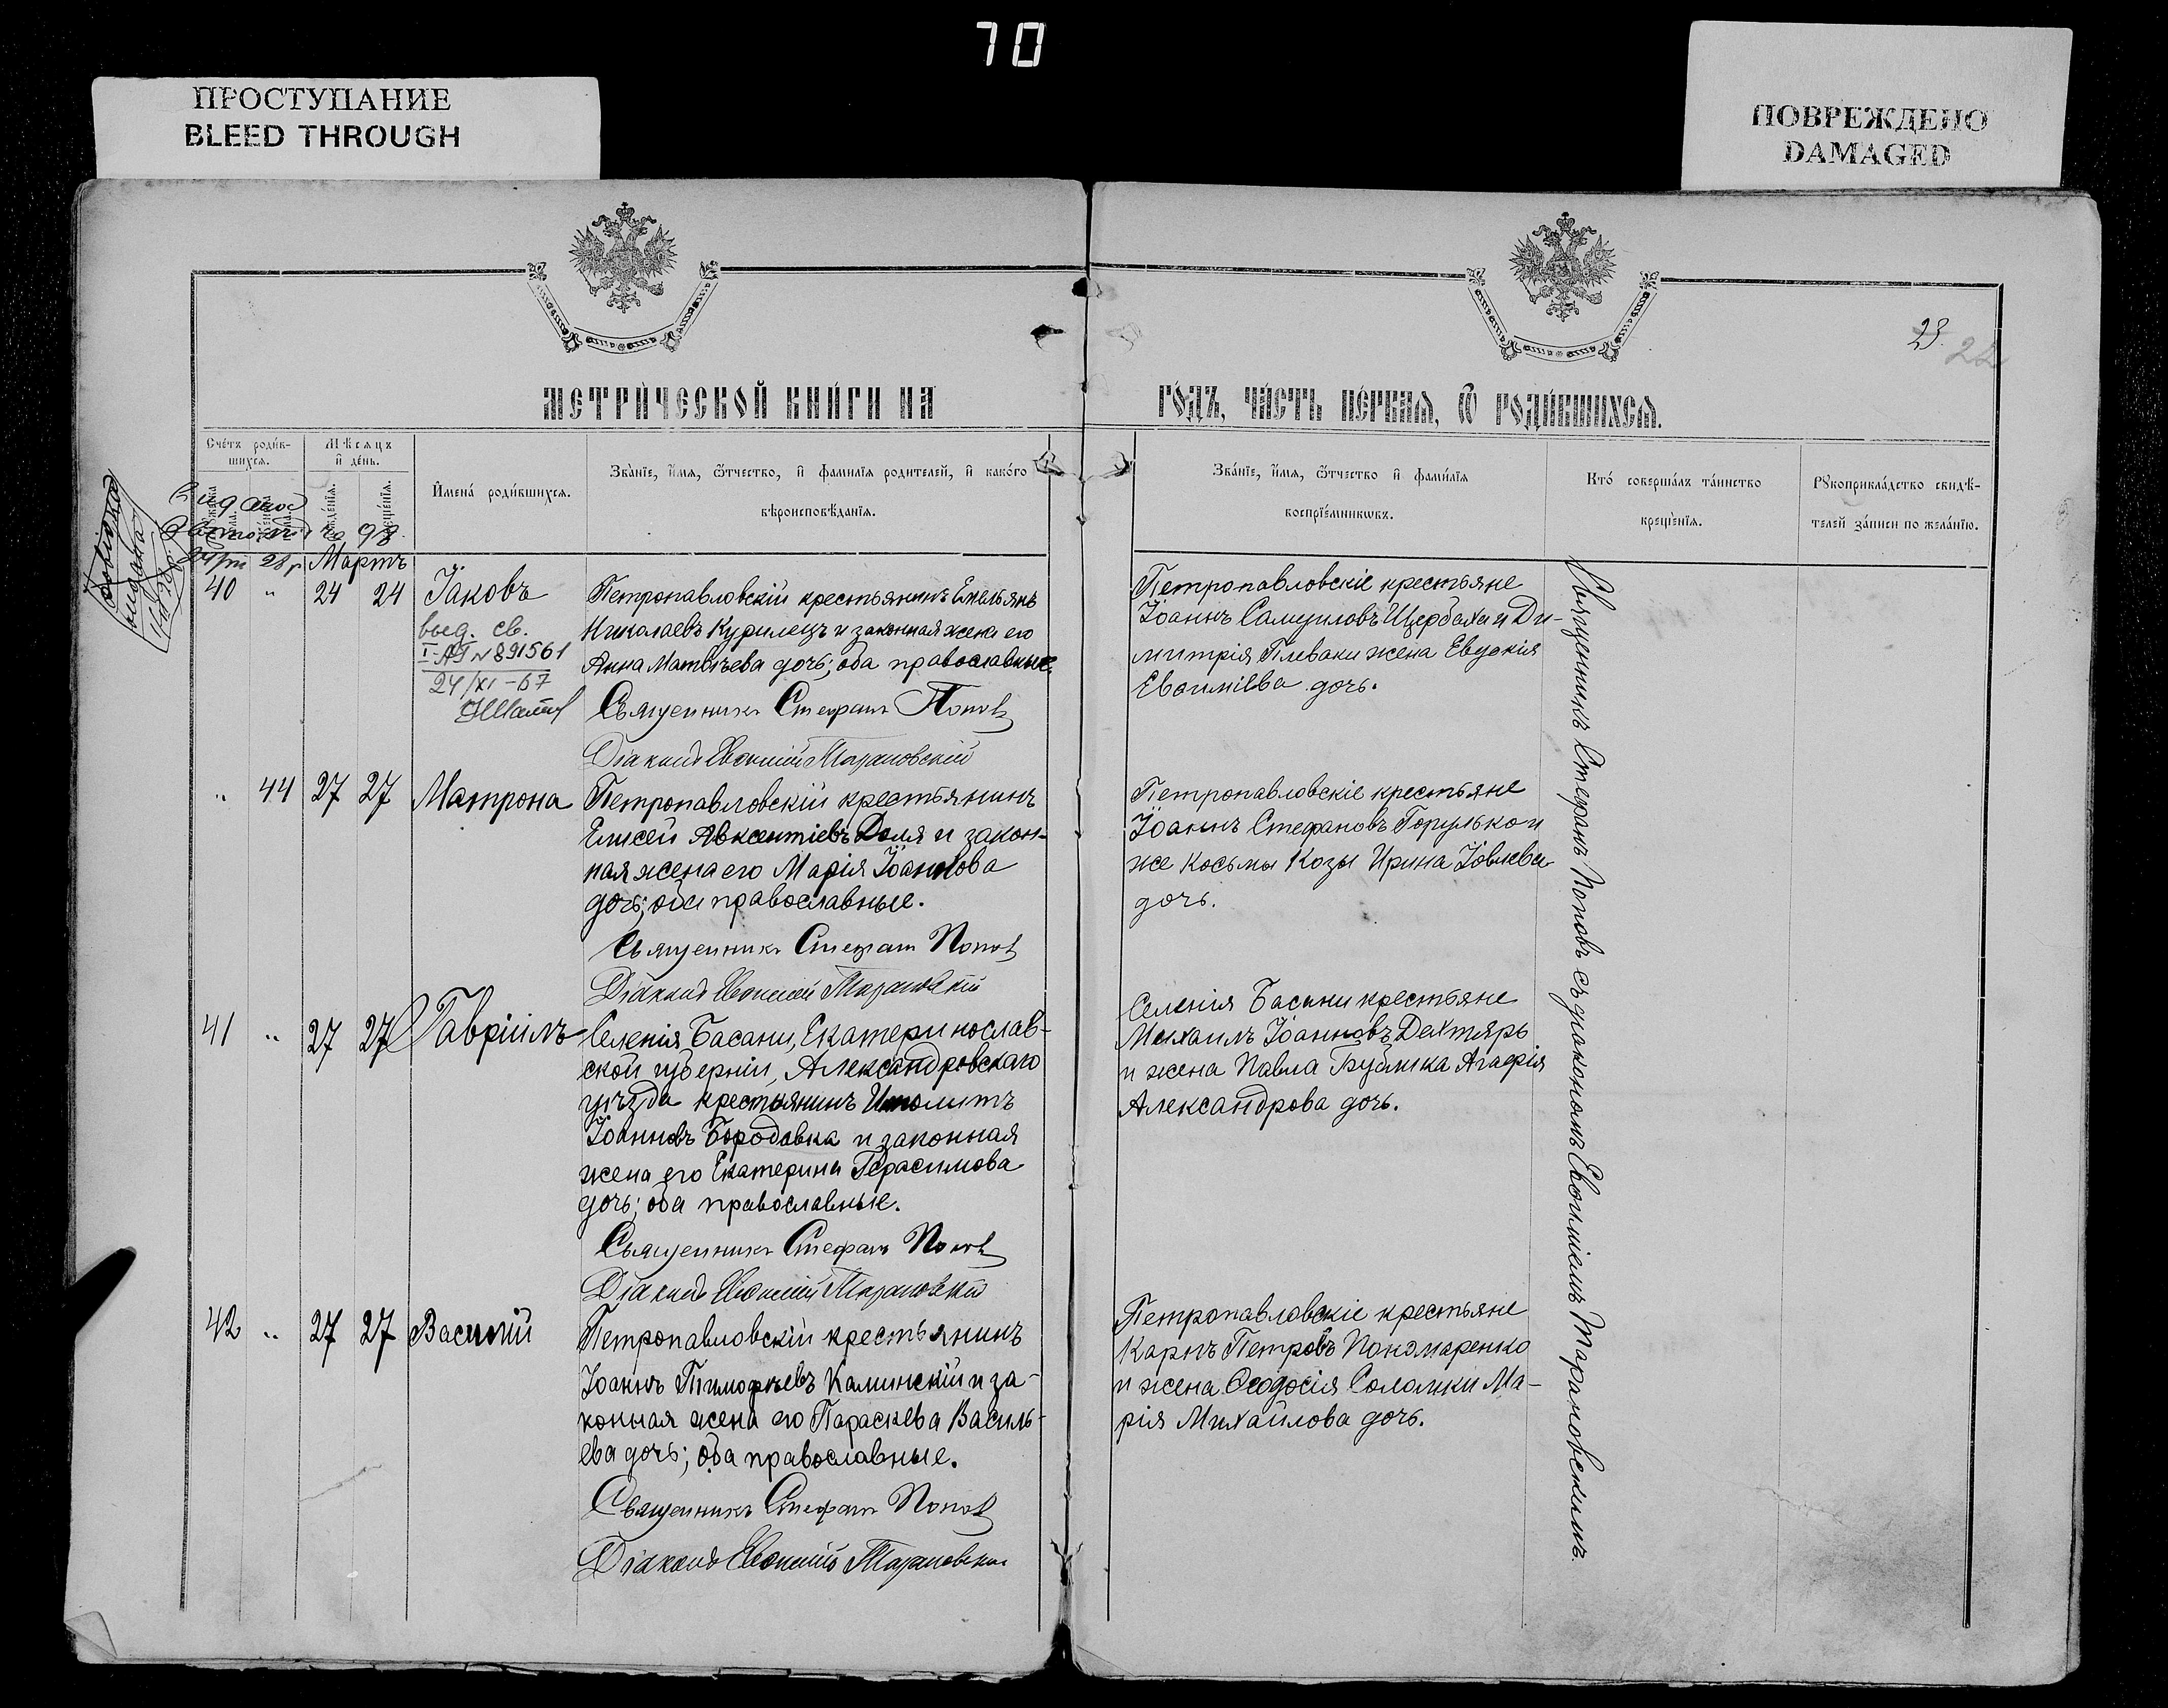 70
ПРОСТУПАНИЕ
BLEED THROUGH
ПОВРЕЖДЕНО
DAMAGED
23.
22
МЕТРИ́ЧЕСКОЙ КНИ́ГИ НА
ГО́ДЪ, ЧА́СТЬ ПЕ́РВАЯ, Ѽ РОДИ́ВШИХСЯ.
Сче́тъ роди́в-
шихся.
Мѣсяцъ
и҆ де́нь.
И҆мена́ роди́вшихся.
Зва́нїе, и҆́мя, ѻ҆́тчество, и҆ фамилїя родителей, и҆ како́го
вѣроисповѣ́данїя.
Зва́нїе, и҆́мя, ѻ҆́тчество и҆ фами́лїя
воспрїе́мникѡвъ.
Кто́ соверша́лъ та́инство
креще́нїя.
Рꙋкоприкла́дство свидѣ́-
телей за́писи по жела́нїю.
Мартъ
40 " 24 24 Іаковъ
выд. св.
I-АП № 891561
24/XI-67
Петропавловскій крестьянинъ Емельянъ
Николаевъ Курилецъ и законная жена его
Анна Матвѣева дочь; оба православные.
Священникъ Стефанъ Поповъ
Діаконъ Евѳимій Тарановскій
Петропавловскіе крестьяне
Іоаннъ Самуиловъ Щербаха и Ди-
митрія Плеваки жена Евдокія
Евѳиміева дочь.
" 44 27 27 Матрона
Петропавловскій крестьянинъ
Елисей Авксентіевъ Доля и закон-
ная жена его Марія Іоаннова
дочь; оба православные.
Священникъ Стефанъ Поповъ
Діаконъ Евѳимій Тарановскій
Петропавловскіе крестьяне
Іоаннъ Стефановъ Горулько и
же Косьмы Козы Ирина Іовлева
дочь.
41 " 27 27 Гавріилъ
Селенія Басани, Екатеринослав-
ской губерніи, Александровскаго
уѣзда крестьянинъ Иполитъ
Іоанновъ Бородавка и законная
жена его Екатерина Герасимова
дочь; оба православные.
Священникъ Стефанъ Поповъ
Діаконъ Евѳимій Тарановскій
Селенія Басани крестьяне
Михаилъ Іоанновъ Дехтярь
и жена Павла Бублика Агафія
Александрова дочь.
42 " 27 27 Василій
Петропавловскій крестьянинъ
Іоаннъ Тимофѣевъ Калинскій и за-
конная жена его Параскева Василь-
ева дочь; оба православные.
Священникъ Стефанъ Поповъ
Діаконъ Евѳимій Тарановскій
Петропавловскіе крестьяне
Карпъ Петровъ Пономаренко
и жена Ѳеодосія Соломки Ма-
рія Михайлова дочь.
Священникъ Стефанъ Поповъ съ діакономъ Евѳиміемъ Тарановскимъ.